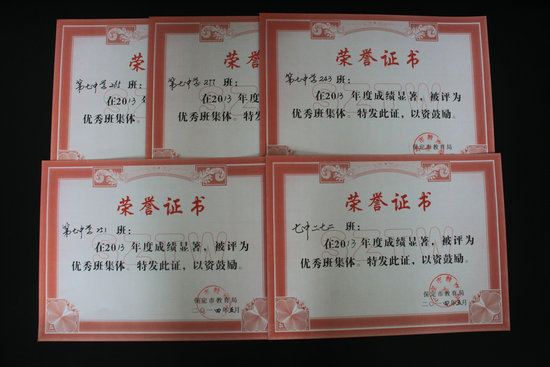 荣
第七中学
班:
在2013年
优秀班集体
荣誉证
第七中学277班:
在2013年度
优秀班集体。特
荣誉证书
第七中学263班:
在2013年度成绩显著，被评为
优秀班集体。特发此证，以资鼓励。
保定市教育局
荣誉证书
第七中学221班:
在2013年度成绩显著，被评为
优秀班集体。特发此证，以资鼓励。
保定市教育局
二〇一四年五月
荣誉证书
七中二七二班:
在2013年度成绩显著，被评为
优秀班集体。特发此证，以资鼓励。
保定市教育局
二〇一四年五月